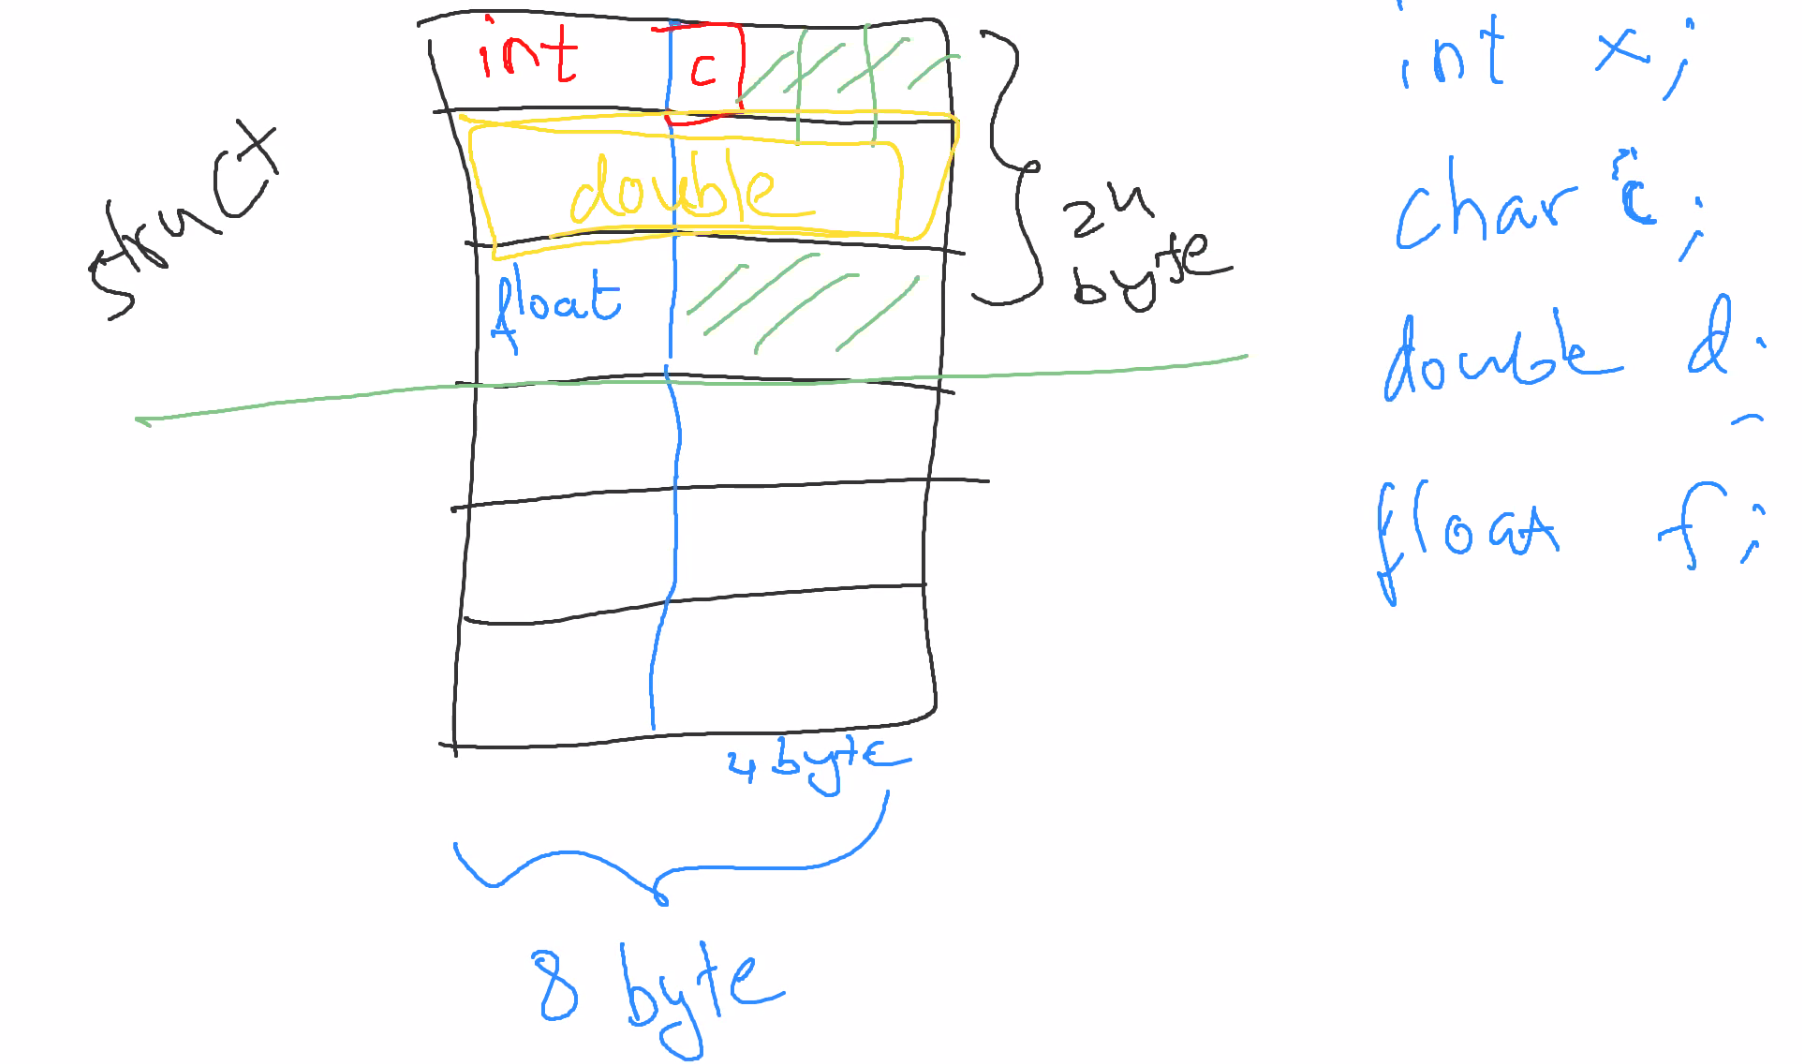 struct
int c
double
float
24
byte
4 byte
8 byte
int x;
char c;
double d;
float f;